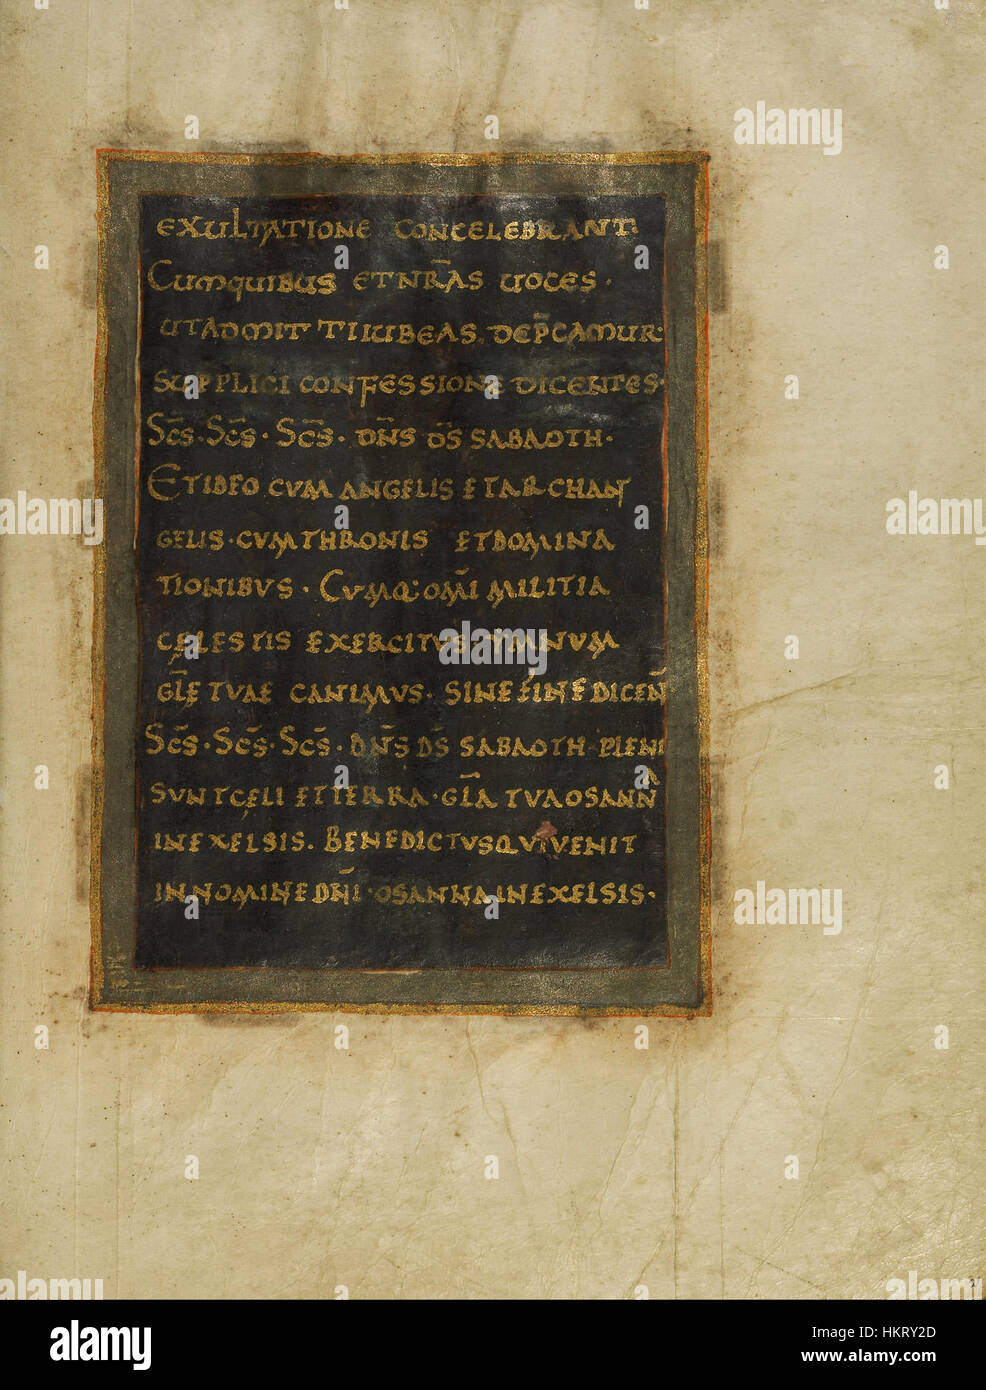 EXULTATIONE CONCELEBRANT.
CUMQUIBUS ETNR̄AS UOCES·
UTADMITTIIUBEAS. DEP̄CAMUR·
SUPPLICI CONFESSIONE DICENTES·
SC̄S·SC̄S·SC̄S·DN̄S DS̄ SABAOTH·
ETIDEO CUM ANGELIS ETARCHAN
GELIS·CUMTHRONIS ETDOMINA
TIONIBUS·CUMQ:OM̄I MILITIA
CĘLESTIS EXERCITUS·YMNUM
GL̄Ę TUAE CANIMUS·SINE FINE DICEN̄·
SC̄S·SC̄S·SC̄S·DN̄S DS̄ SABAOTH·PLENI
SUNTCĘLI ETTERRA·GL̄A TUAOSANNA
INEXELSIS. BENEDICTUSQUIVENIT
INNOMINEDN̄I·OSANNAINEXELSIS·
alamy
Image ID: HKRY2D
www.alamy.com